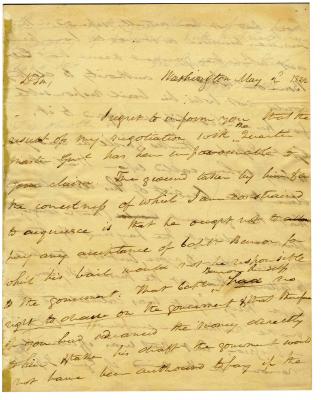 Dr Sir, Washington May 2d
I regret to inform you that the
result of my negotiation with the Quarter
Master Genl has been unfavourable to
your claim. The ground taken by him &
the correctness of which I am constrained
to acquiesce is that he ought not to
pay any acceptance of Capt for
which his bail would not be responsible
to the government. That Capt himself had no
right to draw on the government & that therefore
if you had advanced the money directly
to him & taken his draft the government would
not have been authorised to pay it the